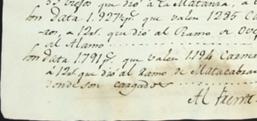 de Viejos que dió a la Matanza, a
son data 1.927 p.s que valen 1295 Ca
ros, a 12 s. que dió al Ramo de Ove
al Alamo
son data 1791 p.s que valen 1194 Carne
à 12 s. que dió al Ramo de Matacabras
donde son cargados
Al frente